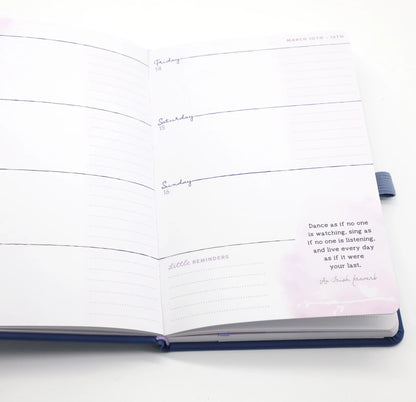 MARCH 10TH - 16TH
Friday
14
Saturday
15
Sunday
16
Little REMINDERS
Dance as if no one
is watching, sing as
if no one is listening,
and live every day
as if it were
your last.
An Irish Proverb